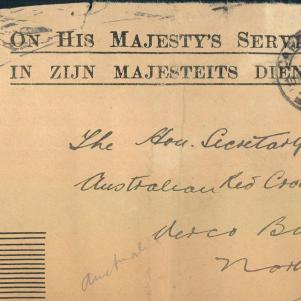 ON HIS MAJESTY'S SERVI
IN ZIJN MAJESTEITS DIEN
The Hon. Secretary
Australian Red Cro
Verco Bu
Nor
Australi